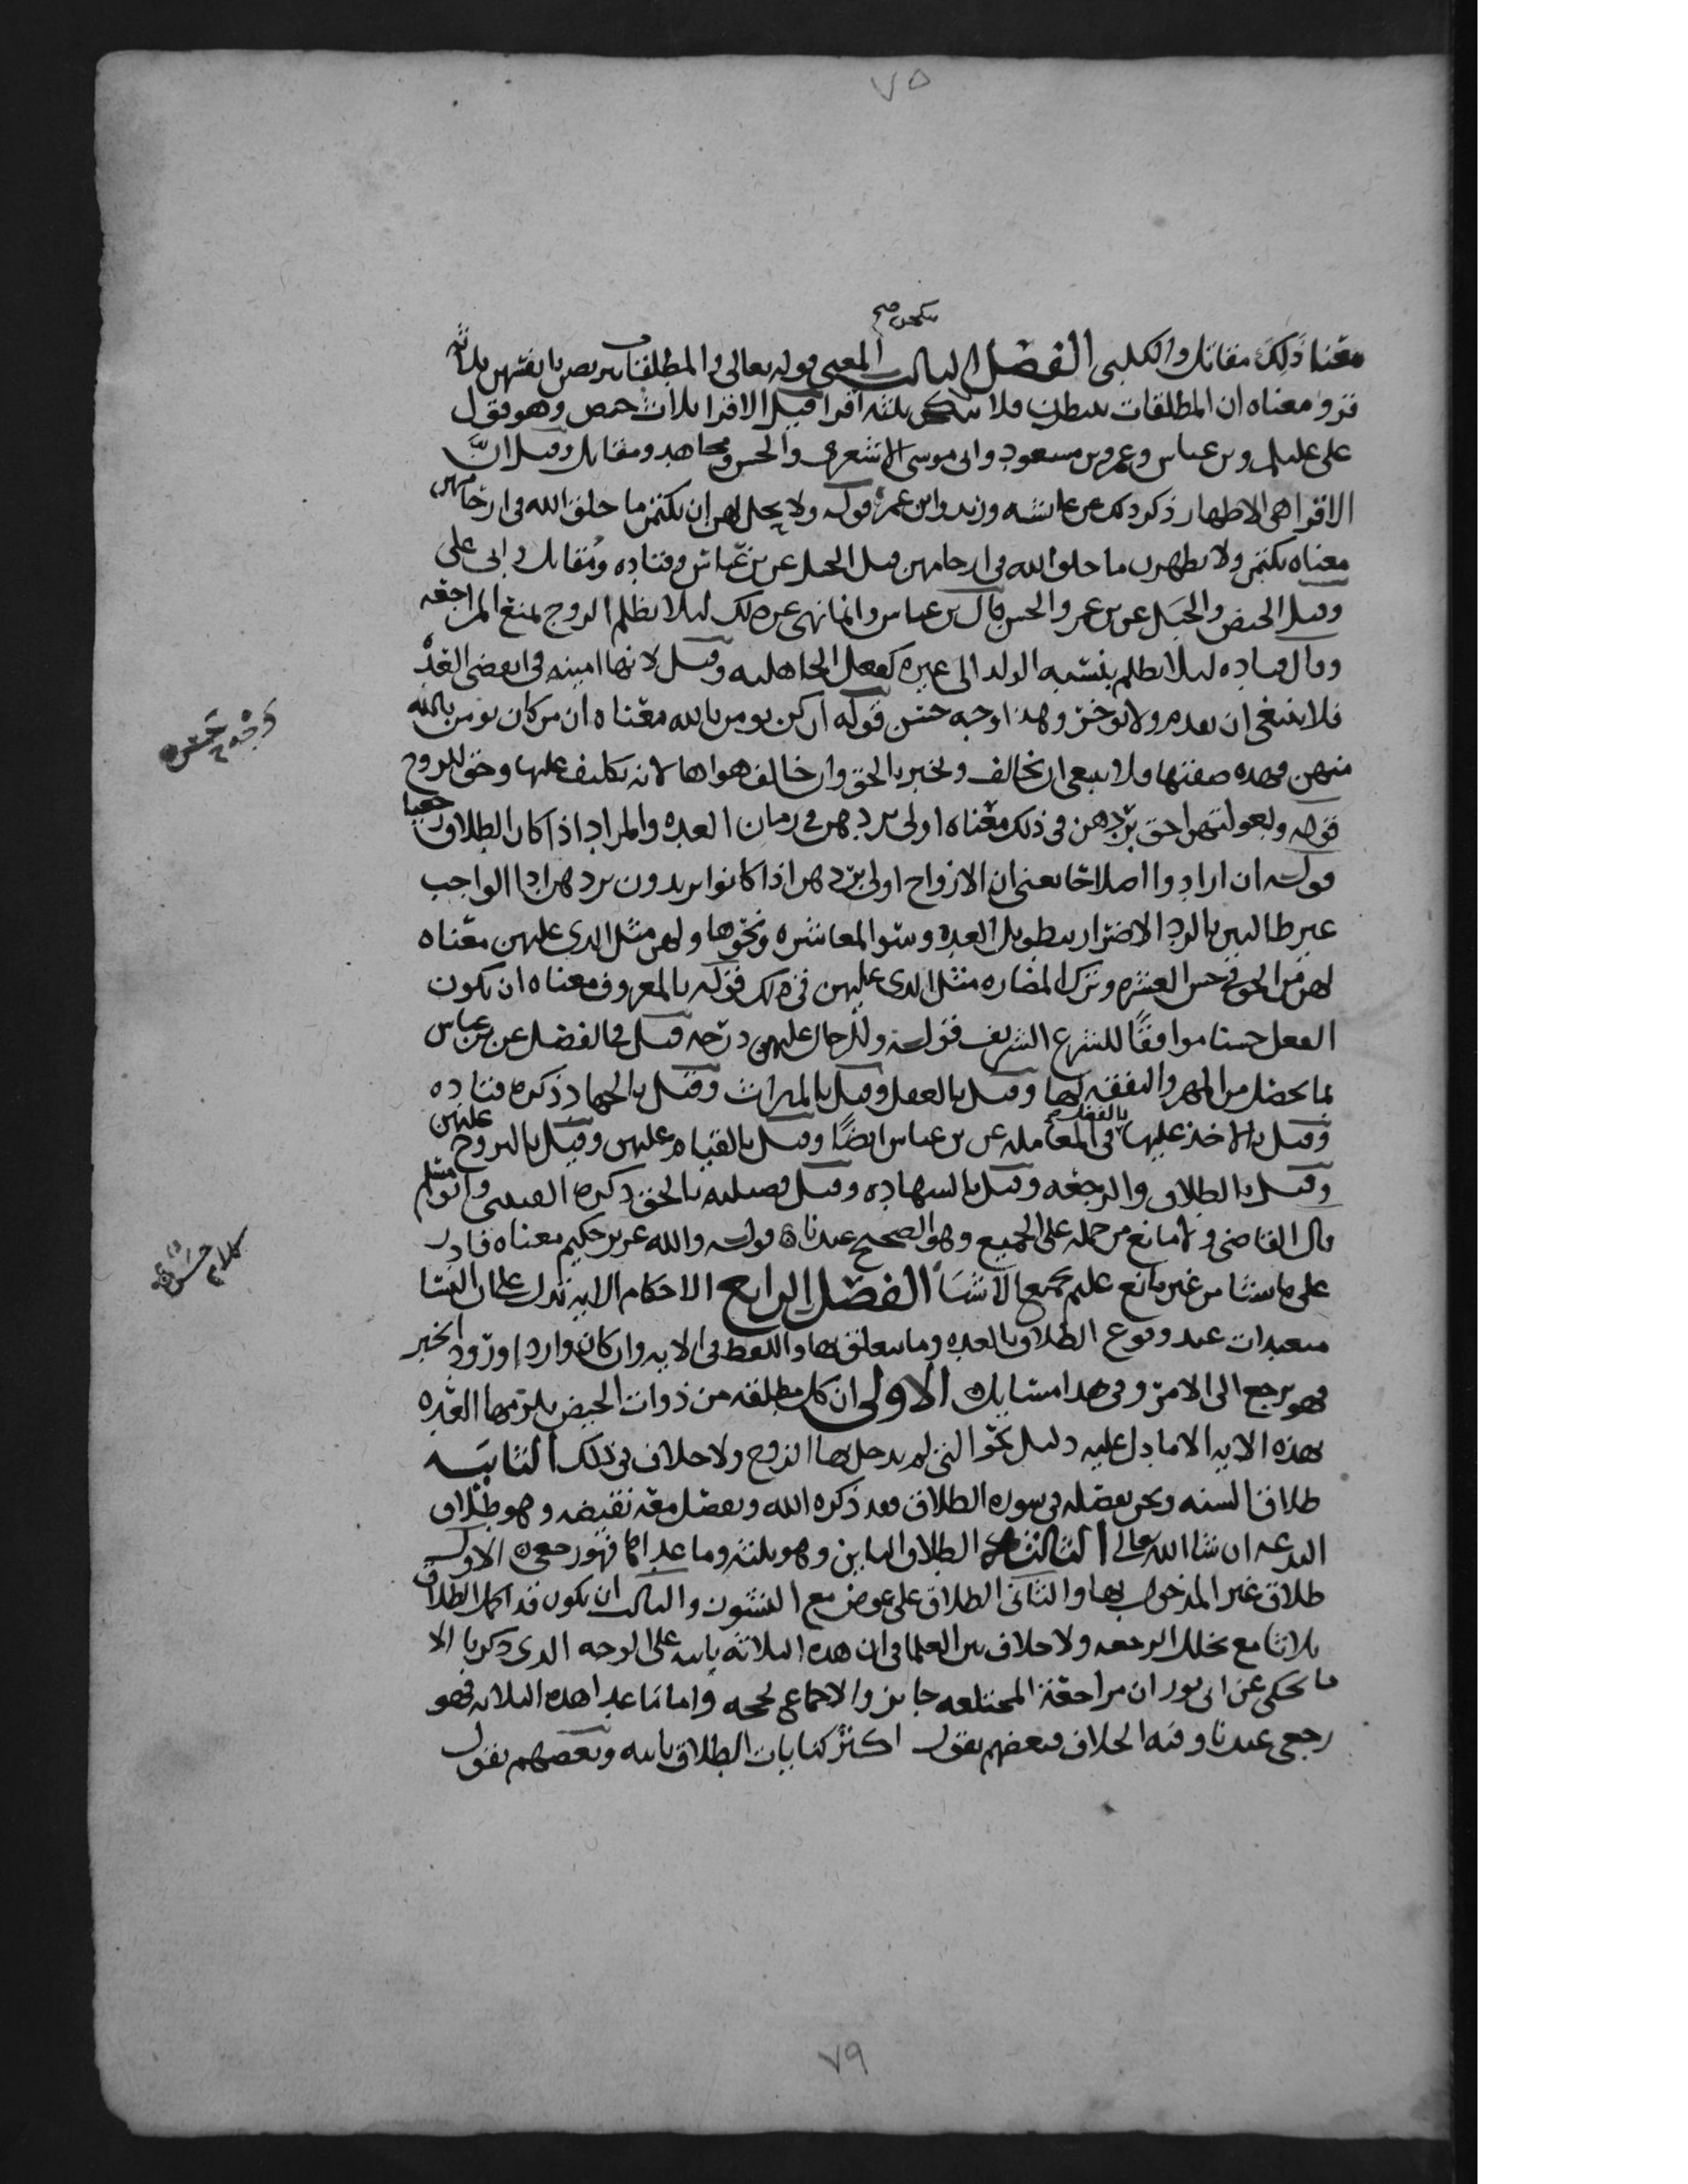 ٧٥
ينكحن صح
معنا ذلك مقاتل والكلبي الفصل الثالث المعنى قوله تعالى والمطلقات يتربصن بانفسهن ثلاثة
قرو معناه ان المطلقات ينتظرن فلا ثلثه اقرا قيل الاقرا ثلاث حيض وهو قول
على عليلم وبن عباس وعمر وبن مسعود وابى موسى الاشعرى والحسن ومجاهد ومقاتل وقيل انَّ
الاقرا هى الاطهار ذكر ذلك عن عائشه وزيد وابن عمر قوله ولا يحل لهن ان يكتمن ما خلق الله فى ارحامهن
معناه يكتمن ولا يظهرن ما خلق الله فى ارحامهن قيل الحبل عن بن عباس وقتاده ومقاتل وابى على
وقيل الحيض والحبَل عن بن عمر والحسن قال بن عباس وانما نهى عن ذلك ليلا يظلم الزوج بمنع المراجعه
وقال قتاده ليلا يظلم بنسبه الولد الى غيره كفعل الجاهليه وقيل لانها امينه فى انقضى العدّه
فلا ينبغى ان يقدم ولا يوخر وهذا وجه حسن قوله ان كن يومن بالله معناه ان من كان يومن بالله
منهن فهذه صفتها فلا ينبغى ان تخالف وتخبر بالحق وان خالف هواها لانه تكليف عليها وحق للزوج
قوله وبعولتهن احق بردهن فى ذلك معناه اولى بردهن فى زمان العده والمراد اذا كان الطلاق رجعيا
قوله ان ارادوا اصلاحًا يعنى ان الازواج اولى بردهن اذا كانوا يريدون بردهن ادا الواجب
غير طالبين بالرد الاضرار بتطويل العده وسو المعاشره ونحوها ولهن مثل الذى عليهن معناه
لهن من الحق فى حسن العشره وترك المضاره مثل الذى عليهن فى ذلك قوله بالمعروف معناه ان يكون
الفعل حسنا موافقًا للشرع الشريف قوله وللرجال عليهن درجه قيل فى الفضل عن بن عباس
بما يحصل من المهر والنفقه لها وقيل بالعقل وقيل بالميراث وقيل بالجهاد ذكره قتاده
وقيل بالاخذ عليها بالفضل صح فى المعامله عن بن عباس ايضًا وقيل بالقيام عليهن وقيل بالتزوج عليهن
وقيل بالطلاق والرجعه وقيل بالشهاده وقيل فضيله بالحق ذكره القيسى وابو مسلم
قال القاضى ولا مانع من حمله على الجميع وهو الصحيح عندنا قوله والله عزيز حكيم معناه قادر
على ما يشا من غير مانع عليم بجميع الاشيَا الفصل الرابع الاحكام الايه تدل على ان النسا
متعبدات عند وقوع الطلاق بالعده وما يتعلق بها واللفظ فى الايه وان كان وارد اورود الخبر
فهو يرجع الى الامر وفى هذا مسايل الاولى ان كل مطلقه من ذوات الحيض يلزمها العدّه
بهذه الايه الا ما دل عليه دليل نحو التى لم يدخل بها الزوج ولا خلاف فى ذلك الثانيه
طلاق السنه ونحن نفصّله فى سوره الطلاق فقد ذكره الله ونفصل معه نقيضه وهو طلاق
البدعه ان شا الله تعالى الثالثه الطلاق الباين وهو ثلثه وما عداها فهو رجعى الاول
طلاق غير المدخول بها والثانى الطلاق على عوض مع النشوز والثالث ان يكون قد اكمل الطلاق
ثلاثا مع تخلل الرجعه ولا خلاف بين العلما فى ان هذه الثلاثه باينه على الوجه الذى ذكرنا الا
ما يحكى عن ابى ثور ان مراجعة المختلعه جايز والاجماع يحجه واما ما عدا هذه الثلاثه فهو
رجعى عندنا وفيه الخلاف فبعضهم يقول اكثر كنايات الطلاق باينه وبعضهم يقول
وَجْه حَسَن
كلام حسن
٧٩